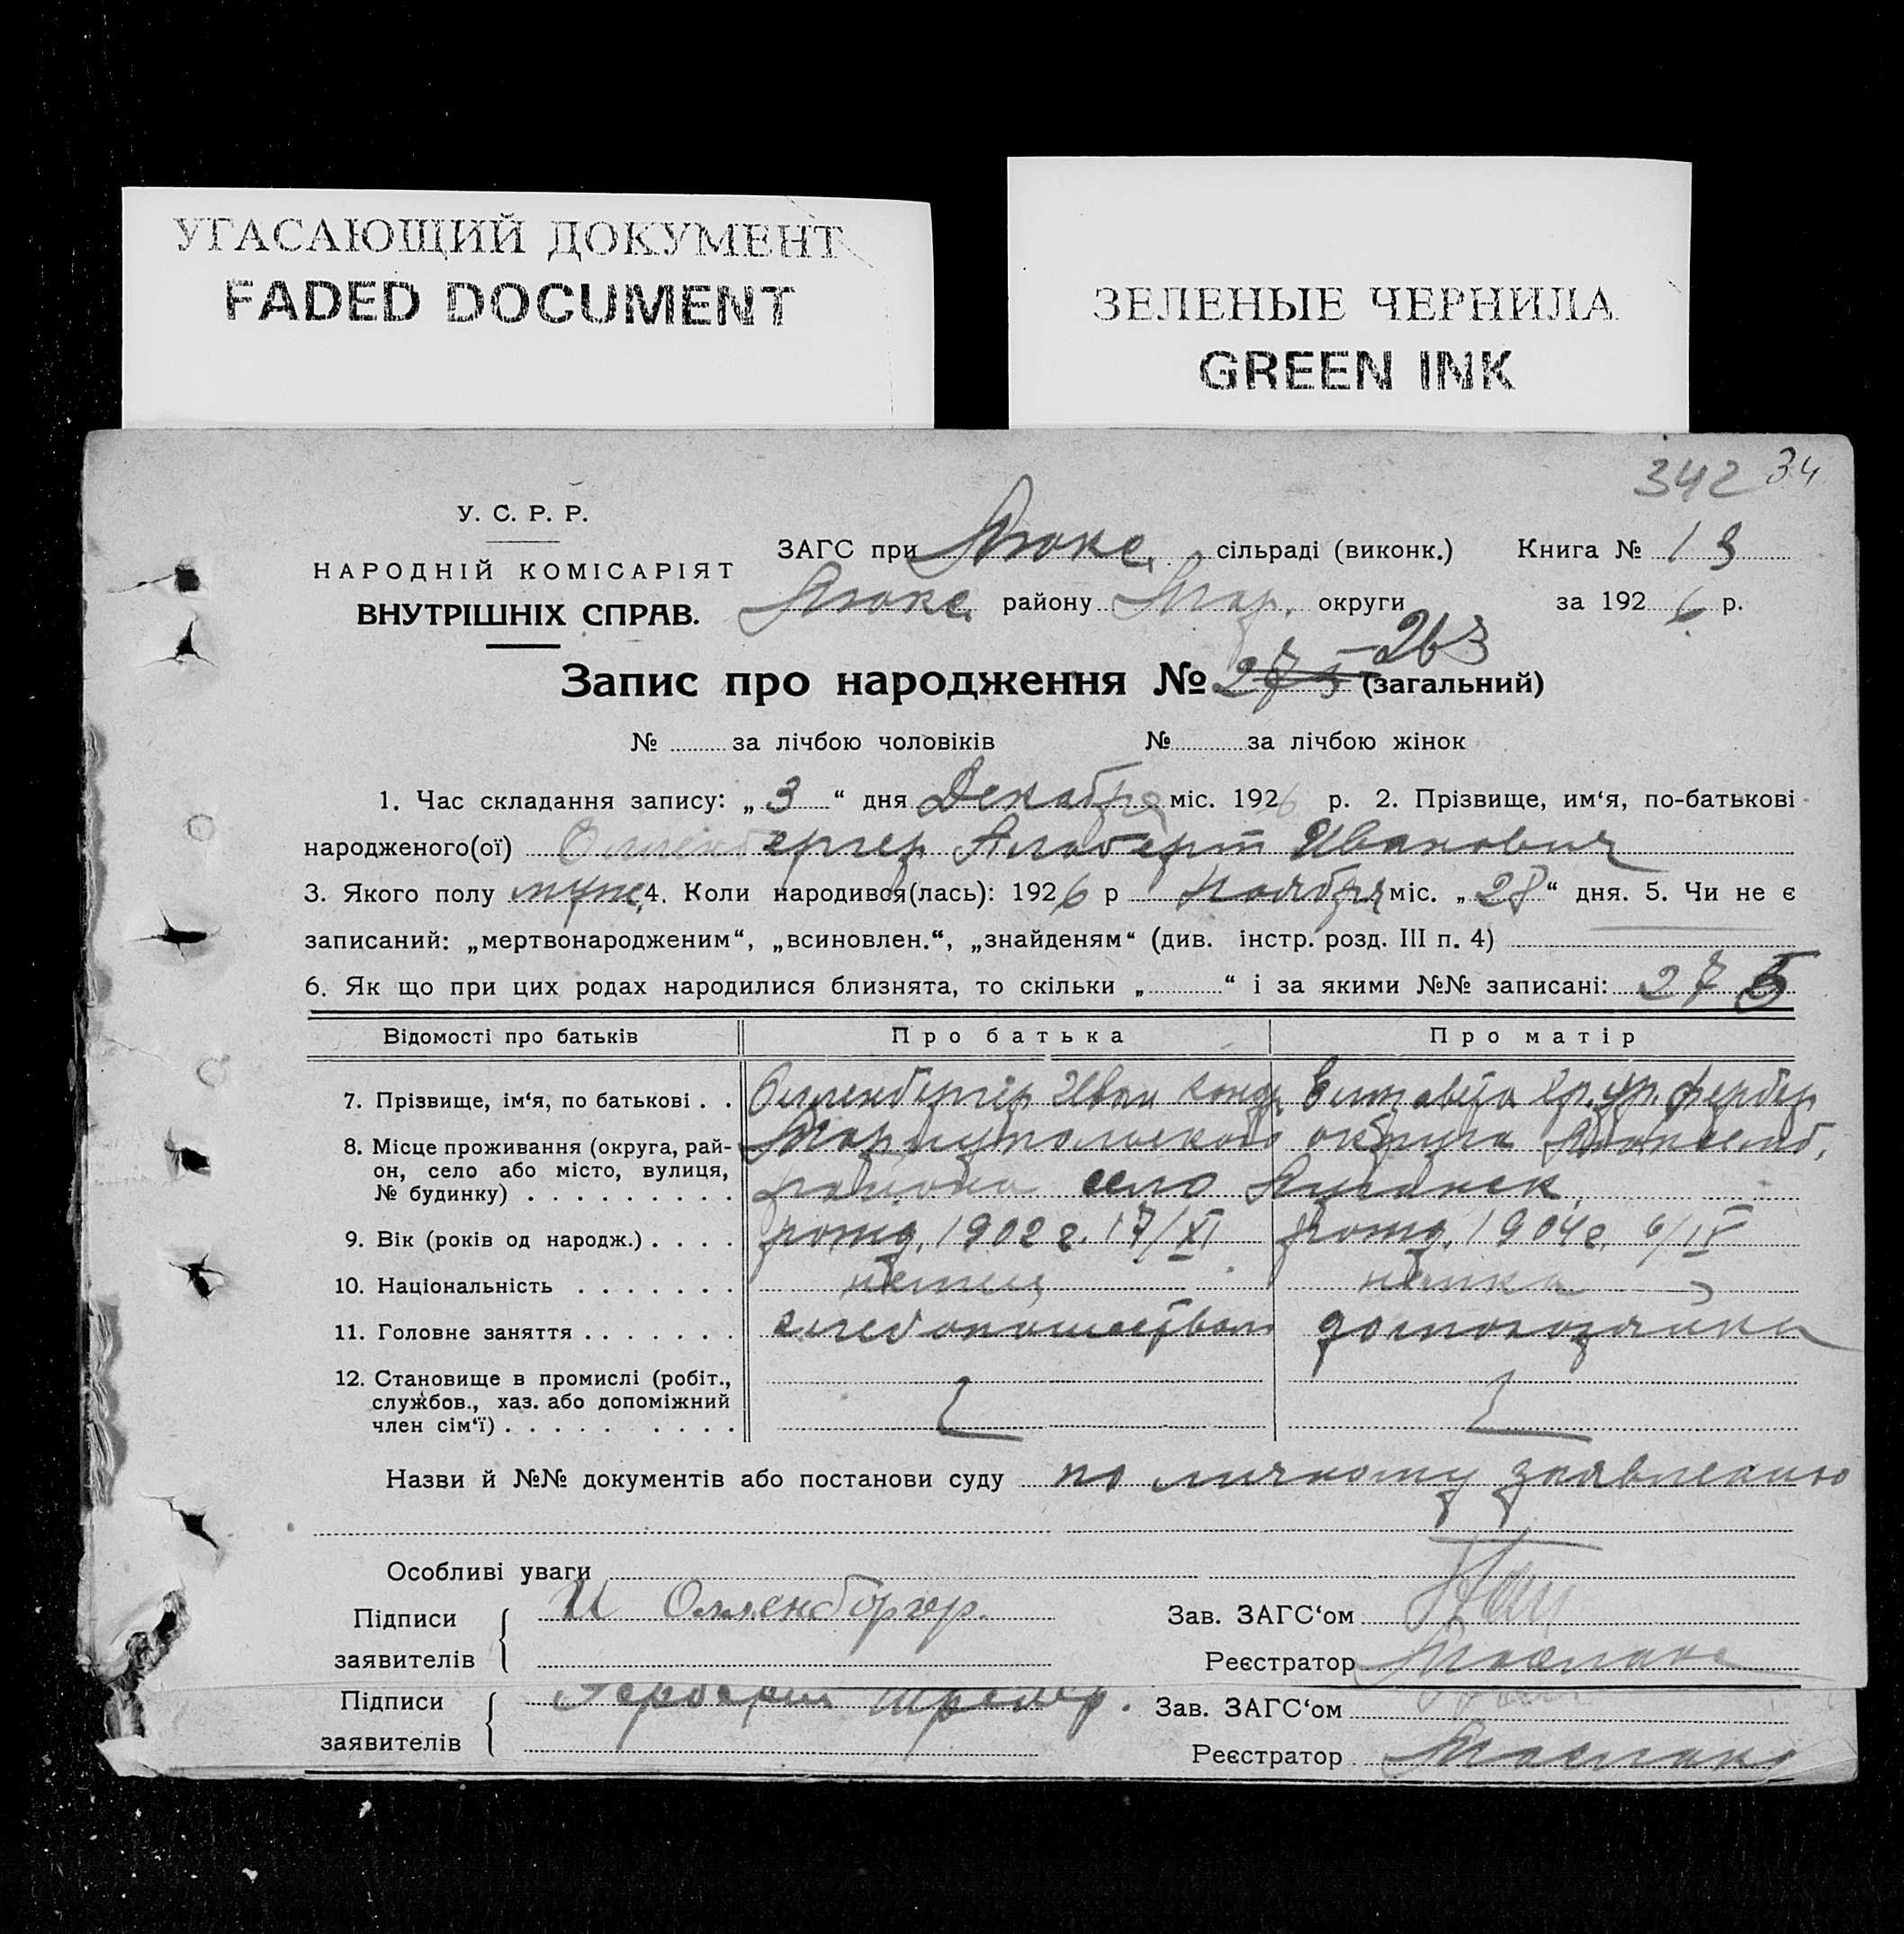 УГАСАЮЩИЙ ДОКУМЕНТ
FADED DOCUMENT
ЗЕЛЕНЫЕ ЧЕРНИЛА
GREEN INK
342 34
У. С. Р. Р.
НАРОДНІЙ КОМІСАРІЯТ
ВНУТРІШНІХ СПРАВ.
ЗАГС при Люкс. сільраді (виконк.) Книга № 13
Люкс. району Мар. округи за 1926 р.
Запис про народження № 275 263 (загальний)
№ за лічбою чоловіків № за лічбою жінок
1. Час складання запису: „3“ дня Декабря міс. 1926 р. 2. Прізвище, им‘я, по-батькові
народженого(ої) Олленбергер Альберт Иванович
3. Якого полу муж. 4. Коли народився(лась): 1926 р Ноября міс. „28“ дня. 5. Чи не є
записаний: „мертвонародженим“, „всиновлен.“, „знайденям“ (див. інстр. розд. III п. 4)
6. Як що при цих родах народилися близнята, то скільки „ “ і за якими №№ записані: 275
Відомості про батьків Про батька Про матір
7. Прізвище, ім‘я, по батькові . . Олленбергер Иван Конд. Елизавета Хр. ур. Фербер
8. Місце проживання (округа, рай- Мариупольского округа
он, село або місто, вулиця,
№ будинку) . . . . . . . . . района село
9. Вік (років од народж.) . . . . рожд. 1902 г. 17/XI рожд. 1904 г. 6/IV
10. Національність . . . . . . . немец немка
11. Головне заняття . . . . . . . хлебопашеством домохозяйка
12. Становище в промислі (робіт.,
службов., хаз. або допоміжний
член сім‘ї) . . . . . . . . .
Назви й №№ документів або постанови суду по личному заявлению
Особливі уваги
Підписи И Олленбергер. Зав. ЗАГС‘ом
заявителів Реєстратор
Підписи Герберт Зав. ЗАГС‘ом
заявителів Реєстратор